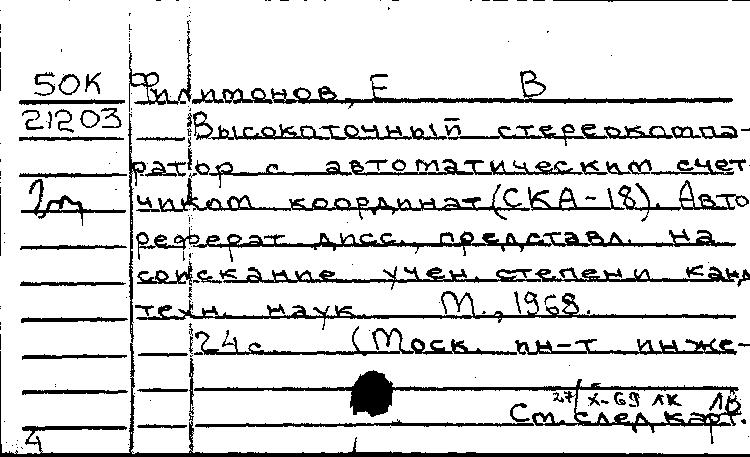 50К Филимонов, Е В
21203 Высокоточный стереокомпа-
ратор с автоматическим счет-
чиком координат (СКА-18). Авто-
реферат дисс., представл. на
соискание учен. степени канд
техн. наук М., 1968.
24с (Моск. ин-т инже-
27/X-69 1К 1В
См. след карт.
4